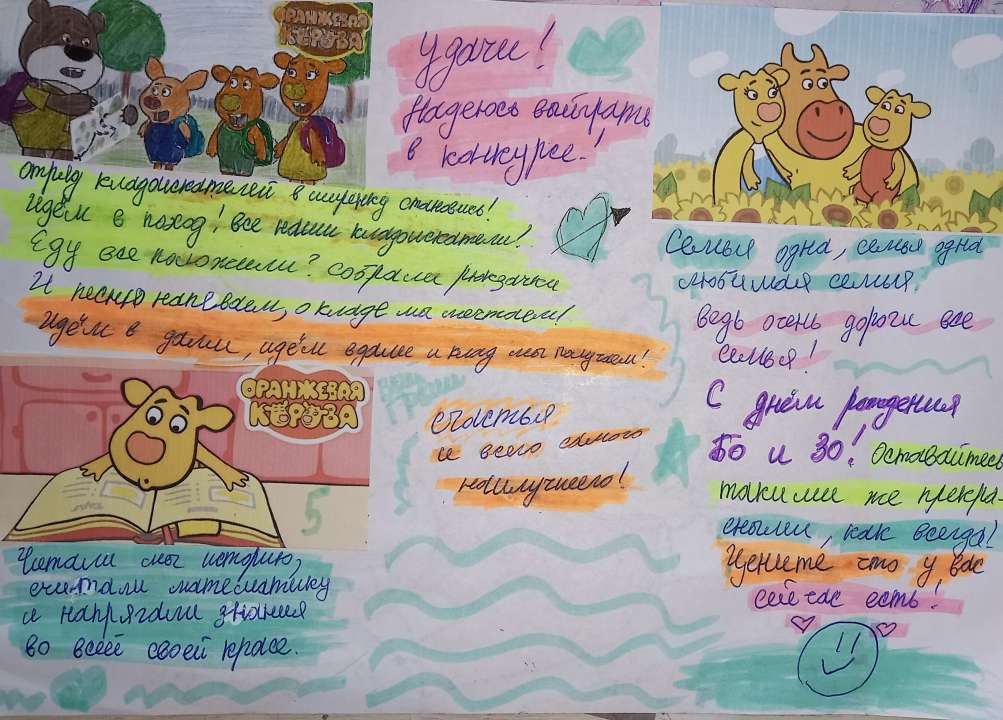 ОРАНЖЕВАЯ
КОРОВА
Удачи!
Надеюсь выйграть
в конкурсе!
отряд кладоискателей в шеренгу становись!
Идём в поход! все наши кладоискатели!
Еду все положили? собрали рюкзачки
И песню напеваем, о кладе мы мечтаем!
Идём в дали, идём вдали и клад мы получаем!
Семья одна, семья одна
любимая семья.
ведь очень дороги все
семья!
С днём рождения
Бо и Зо! Оставайтесь
такими же прекра-
сными, как всегда!
Цените что у вас
сейчас есть!
счастья
и всего самого
наилучшего!
ОРАНЖЕВАЯ
КОРОВА
5
Читали мы историю,
считали математику
и напрягали знания
во всей своей красе.